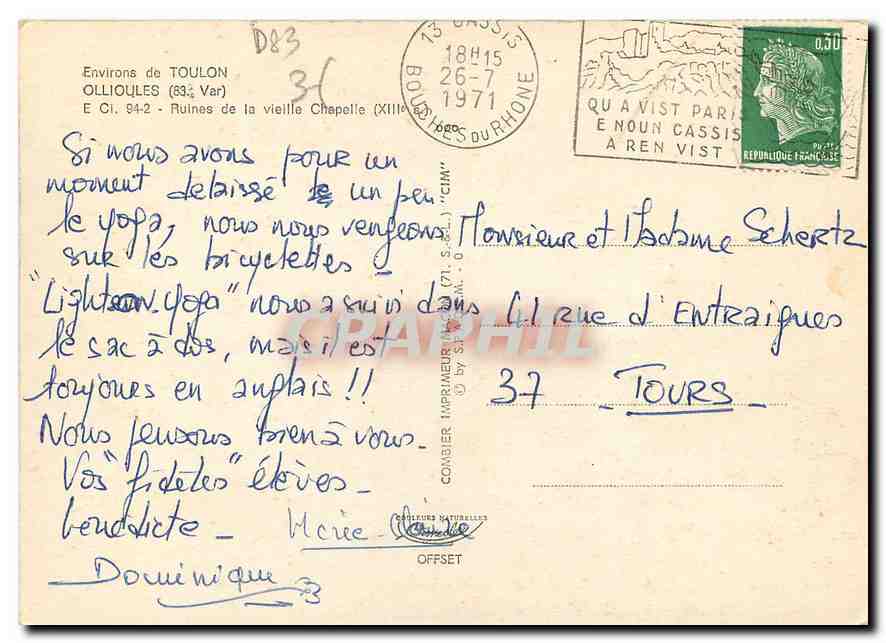 D83
3-(
Environs de TOULON
OLLIOULES (83 - Var)
E Ci. 94-2 - Ruines de la vieille Chapelle (XIIIe
13 CASSIS
18H15
26-7
1971
BOUCHES DU RHONE
QU A VIST PARIS
E NOUN CASSIS
A REN VIST
0,30
POSTES
REPUBLIQUE FRANÇAISE
Si nous avons pour un
moment délaissé un peu
le yoga, nous nous vengeons
sur les bicyclettes -
"Light on yoga" nous a suivi dans
le sac à dos, mais il est
toujours en anglais !!
Nous pensons bien à vous -
Vos "fidèles" élèves -
Bénédicte - Marie-
Dominique
COMBIER IMPRIMEUR MACON (71. S.-&-L.) "CIM"
© by S.P.A.D.E.M. - 0
COULEURS NATURELLES
OFFSET
Monsieur et Madame Schertz
41 rue d'Entraigues
37 - TOURS -
CPAPHIL